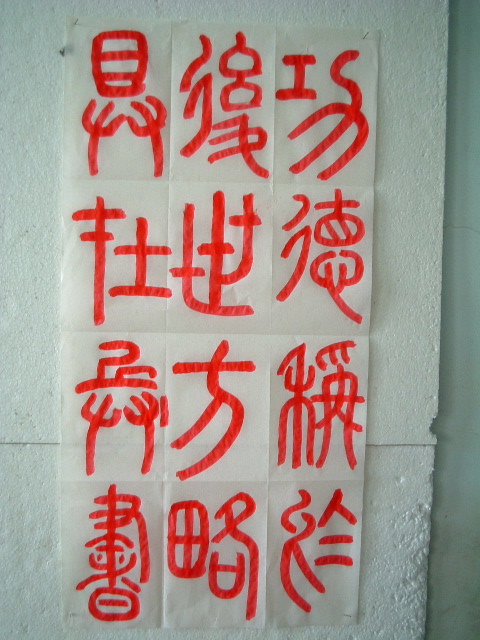 功德稱於
後世方略
具在兵書